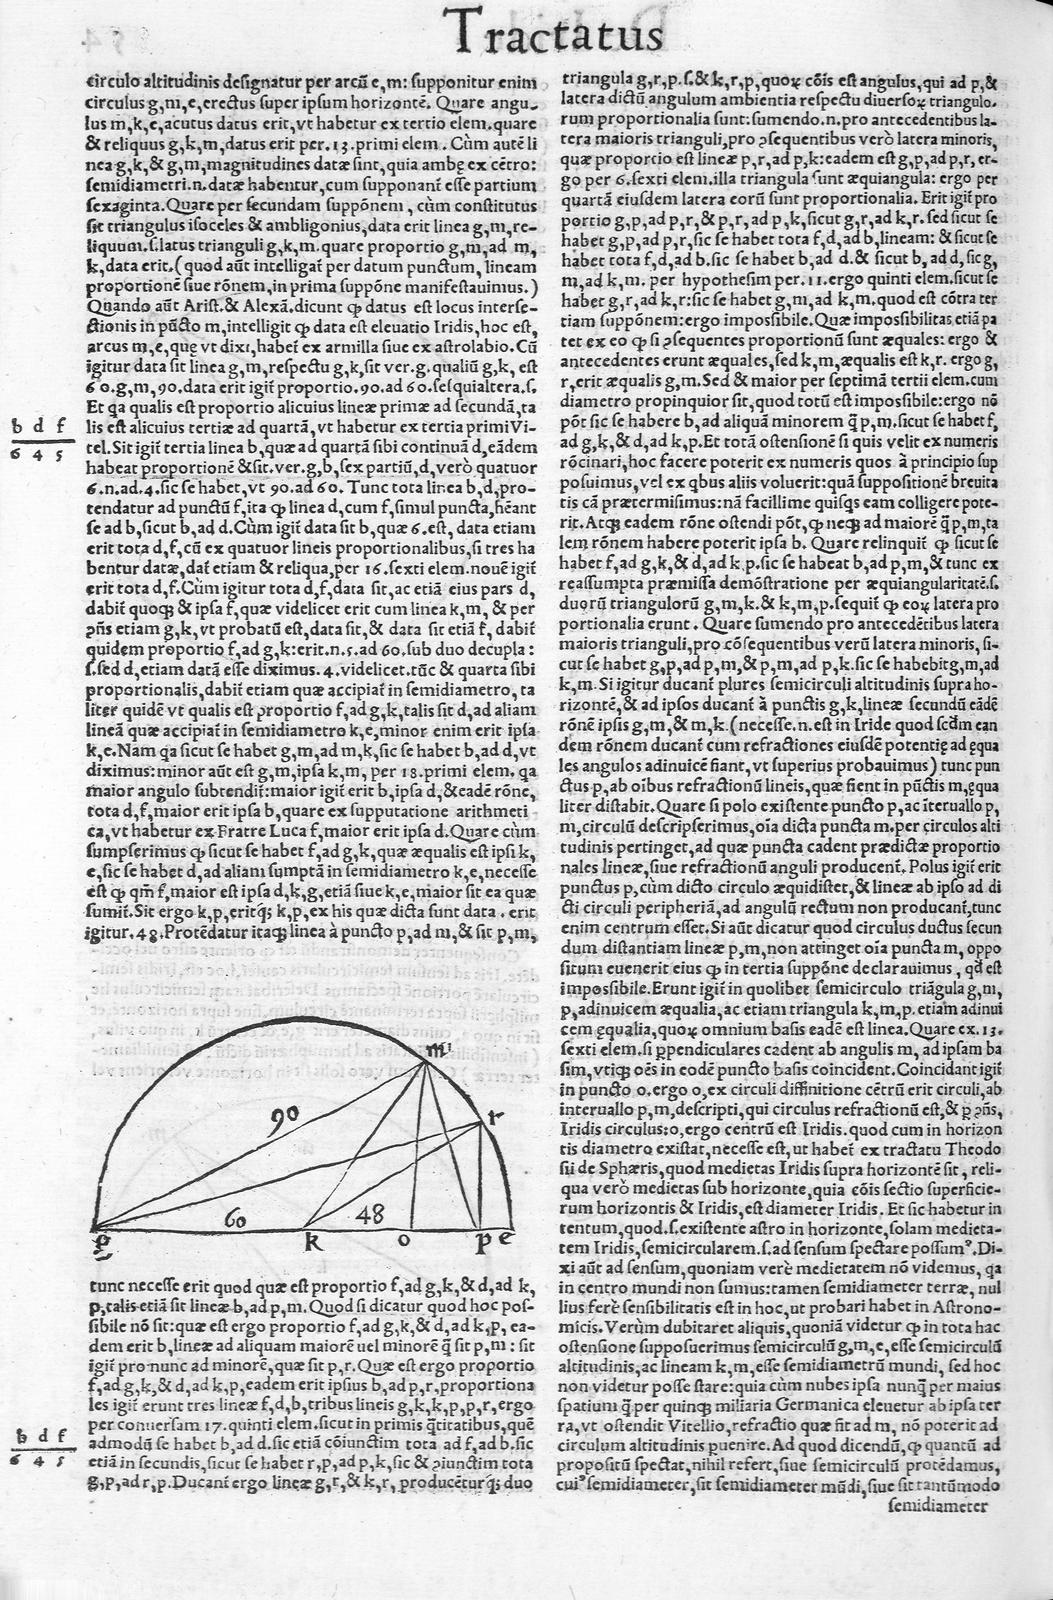 Tractatus
circulo altitudinis designatur per arcũ e,m: supponitur enim
circulus g,m,e,erectus super ipsum horizontẽ. Quare angu-
lus m,k,e,acutus datus erit,vt habetur ex tertio elem.quare
& reliquus g,k,m,datus erit per.13.primi elem. Cùm autẽ li
nea g,k,& g,m,magnitudines datæ sint,quia ambę ex cẽtro:
semidiametri.n.datæ habentur,cum supponant̃ esse partium
sexaginta.Quare per secundam suppõnem, cùm constitutus
sit triangulus isoceles & ambligonius,data erit linea g,m,re-
liquum.s.latus trianguli g,k,m.quare proportio g,m,ad m,
k,data erit.(quod aũt intelligat̃ per datum punctum, lineam
proportionẽ siue rõnem,in prima suppõne manifestauimus.)
Quando aũt Arist.& Alexã.dicunt ꝙ datus est locus interse-
ctionis in pũcto m,intelligit ꝙ data est eleuatio Iridis,hoc est,
arcus m,e,quę vt dixi,habet̃ ex armilla siue ex astrolabio.Cũ
igitur data sit linea g,m,respectu g,k,sit ver.g.qualiũ g,k, est
60.g,m,90.data erit igit̃ proportio.90.ad 60.sesquialtera.s.
Et qa qualis est proportio alicuius lineæ primæ ad secundã,ta
lis est alicuius tertiæ ad quartã,vt habetur ex tertia primi Vi-
tel.Sit igit̃ tertia linea b,quæ ad quartã sibi continuã d,eãdem
habeat proportionẽ & sit.ver.g,b,sex partiũ,d,verò quatuor
6.n.ad.4.sic se habet,vt 90.ad 60. Tunc tota linea b,d,pro-
tendatur ad punctũ f,ita ꝙ linea d,cum f,simul puncta,hẽant
se ad b,sicut b,ad d.Cùm igit̃ data sit b,quæ 6.est, data etiam
erit tota d,f,cũ ex quatuor lineis proportionalibus,si tres ha
bentur datæ,dat̃ etiam & reliqua,per 16.sexti elem.nouẽ igit̃
erit tota d,f.Cùm igitur tota d,f,data sit,ac etiã eius pars d,
dabit̃ quoqꝫ & ipsa f,quæ videlicet erit cum linea k,m, & per
ↄñs etiam g,k,vt probatũ est,data sit,& data sit etiã f, dabit̃
quidem proportio f,ad g,k:erit.n.5.ad 60.sub duo decupla:
s.sed d,etiam datã esse diximus.4.videlicet.tũc & quarta sibi
proportionalis,dabit̃ etiam quæ accipiat̃ in semidiametro, ta
liter quidẽ vt qualis est ꝓportio f,ad g,k,talis sit d,ad aliam
lineã quæ accipiat̃ in semidiametro k,e,minor enim erit ipsa
k,e.Nam qa sicut se habet g,m,ad m,k,sic se habet b,ad d,vt
diximus:minor aũt est g,m,ipsa k,m, per 18.primi elem. qa
maior angulo subtendit̃:maior igit̃ erit b,ipsa d,& eadẽ rõne,
tota d,f,maior erit ipsa b,quare ex supputatione arithmeti
ca,vt habetur ex Fratre Luca f,maior erit ipsa d.Quare cùm
sumpserimus ꝙ sicut se habet f,ad g,k,quæ æqualis est ipsi k,
e,sic se habet d,ad aliam sumptã in semidiametro k,e,necesse
est ꝙ qm̃ f,maior est ipsa d,k,g,etiã siue k,e,maior sit ea quæ
sumit̃.Sit ergo k,p,eritqꝫ k,p,ex his quæ dicta sunt data. erit
igitur.48.Protẽdatur itaqꝫ linea à puncto p,ad m,& sit p,m,
b d f
6 4 5
m
90
r
60
48
g
k
o
p
e
tunc necesse erit quod quæ est proportio f,ad g,k,& d,ad k,
p,talis etiã sit lineæ b,ad p,m. Quod si dicatur quod hoc pos-
sibile nõ sit:quæ est ergo proportio f,ad g,k,& d,ad k,p, ea-
dem erit b,lineæ ad aliquam maiorẽ uel minorẽ q̃ sit p,m: sit
igit̃ pro nunc ad minorẽ,quæ sit p,r.Quæ est ergo proportio
f,ad g,k,& d,ad k,p,eadem erit ipsius b,ad p,r,proportiona
les igit̃ erunt tres lineæ f,d,b,tribus lineis g,k,k,p,p,r,ergo
per conuersam 17.quinti elem.sicut in primis q̃titatibus,quẽ
admodũ se habet b,ad d.sic etiã cõiunctim tota ad f,ad b.sic
etiã in secundis,sicut se habet r,p,ad p,k,sic & ↄiunctim tota
g,p,ad r,p.Ducant̃ ergo lineæ g,r,& k,r, producẽturqꝫ duo
b d f
6 4 5
triangula g,r,p.s.& k,r,p,quoꝝ cõis est angulus,qui ad p,&
latera dictũ angulum ambientia respectu diuersoꝝ triangulo-
rum proportionalia sunt:sumendo.n.pro antecedentibus la-
tera maioris trianguli,pro ↄsequentibus verò latera minoris,
quæ proportio est lineæ p,r,ad p,k:eadem est g,p,ad p,r, er-
go per 6.sexti elem.illa triangula sunt æquiangula: ergo per
quartã eiusdem latera eorũ sunt proportionalia. Erit igit̃ pro
portio g,p,ad p,r,& p,r,ad p,k,sicut g,r,ad k,r.sed sicut se
habet g,p,ad p,r,sic se habet tota f,d,ad b,lineam: & sicut se
habet tota f,d,ad b.sic se habet b,ad d.& sicut b,ad d,sic g,
m,ad k,m. per hypothesim per.11.ergo quinti elem.sicut se
habet g,r,ad k,r:sic se habet g,m,ad k,m.quod est cõtra ter
tiam suppõnem:ergo impossibile.Quæ impossibilitas etiã pa
tet ex eo ꝙ si ↄsequentes proportionũ sunt æquales: ergo &
antecedentes erunt æquales,sed k,m,æqualis est k,r.ergo g,
r,erit æqualis g,m.Sed & maior per septimã tertii elem.cum
diametro propinquior sit,quod totũ est impossibile:ergo nõ
põt sic se habere b,ad aliquã minorem q̃ p,m.sicut se habet f,
ad g,k,& d,ad k,p.Et totã ostensionẽ si quis velit ex numeris
rõcinari,hoc facere poterit ex numeris quos à principio sup
posuimus,vel ex qbus aliis voluerit:quã suppositionẽ breuita
tis cã prætermisimus:nã facillime quisqꝫ eam colligere pote-
rit.Atqꝫ eadem rõne ostendi põt,ꝙ neqꝫ ad maiorẽ q̃ p,m,ta
lem rõnem habere poterit ipsa b. Quare relinquit̃ ꝙ sicut se
habet f,ad g,k,& d,ad k,p.sic se habeat b,ad p,m,& tunc ex
reassumpta præmissa demõstratione per æquiangularitatẽ.s.
duorũ triangulorũ g,m,k.& k,m,p.sequit̃ ꝙ eoꝝ latera pro
portionalia erunt. Quare sumendo pro antecedẽtibus latera
maioris trianguli,pro cõsequentibus verũ latera minoris, si-
cut se habet g,p,ad p,m,& p,m,ad p,k.sic se habebit g,m,ad
k,m.Si igitur ducant̃ plures semicirculi altitudinis supra ho-
rizontẽ,& ad ipsos ducant̃ à punctis g,k,lineæ secundũ eãdẽ
rõnẽ ipsis g,m,& m,k.(necesse.n.est in Iride quod scd̃m ean
dem rõnem ducant̃ cum refractiones eiusdẽ potentię ad ęqua
les angulos adinuicẽ fiant,vt superius probauimus) tunc pun
ctus p,ab oibus refractionũ lineis,quæ fient in pũctis m,ęqua
liter distabit.Quare si polo existente puncto p,ac ĩteruallo p,
m,circulũ descripserimus,oĩa dicta puncta m.per circulos alti
tudinis pertinget,ad quæ puncta cadent prædictæ proportio
nales lineæ,siue refractionũ anguli producent̃.Polus igit̃ erit
punctus p,cùm dicto circulo æquidistet,& lineæ ab ipso ad di
cti circuli peripheriã,ad angulũ rectum non producant̃,tunc
enim centrum esset.Si aũt dicatur quod circulus ductus secun
dum distantiam lineæ p,m,non attinget oĩa puncta m, oppo
situm euenerit eius ꝙ in tertia suppõne declarauimus, qd̃ est
impossibile.Erunt igit̃ in quolibet semicirculo triãgula g,m,
p,adinuicem æqualia,ac etiam triangula k,m,p.etiam adinui
cem ęqualia,quoꝝ omnium basis eadẽ est linea.Quare ex.13.
sexti elem.si ꝑpendiculares cadent ab angulis m, ad ipsam ba
sim,vtiqꝫ oẽs in eodẽ puncto basis coincident.Coincidant igit̃
in puncto o.ergo o,ex circuli diffinitione cẽtrũ erit circuli,ab
interuallo p,m,descripti,qui circulus refractionũ est,& ꝑ ↄñs,
Iridis circulus:o,ergo centrũ est Iridis.quod cum in horizon
tis diametro existat,necesse est,ut habet̃ ex tractatu Theodo
sii de Sphæris,quod medietas Iridis supra horizontẽ sit, reli-
qua verò medietas sub horizonte,quia cõis sectio superficie-
rum horizontis & Iridis,est diameter Iridis. Et sic habetur in
tentum,quod.s.existente astro in horizonte,solam medieta-
tem Iridis,semicircularem.s.ad sensum spectare possumꝰ.Di-
xi aũt ad sensum,quoniam verè medietatem nõ videmus, qa
in centro mundi non sumus:tamen semidiameter terræ, nul
lius ferè sensibilitatis est in hoc,ut probari habet in Astrono-
micis.Verùm dubitaret aliquis,quoniã videtur ꝙ in tota hac
ostensione supposuerimus semicirculũ g,m,e,esse semicirculũ
altitudinis,ac lineam k,m,esse semidiametrũ mundi, sed hoc
non videtur posse stare:quia cùm nubes ipsa nunq̃ per maius
spatium q̃ per quinqꝫ miliaria Germanica eleuetur ab ipsa ter
ra,vt ostendit Vitellio,refractio quæ fit ad m, nõ poterit ad
circulum altitudinis puenire.Ad quod dicendũ,ꝙ quantũ ad
propositũ spectat,nihil refert,siue semicirculũ protẽdamus,
cuiꝰ semidiameter,sit semidiameter mũdi,siue sit tantũmodo
semidiameter